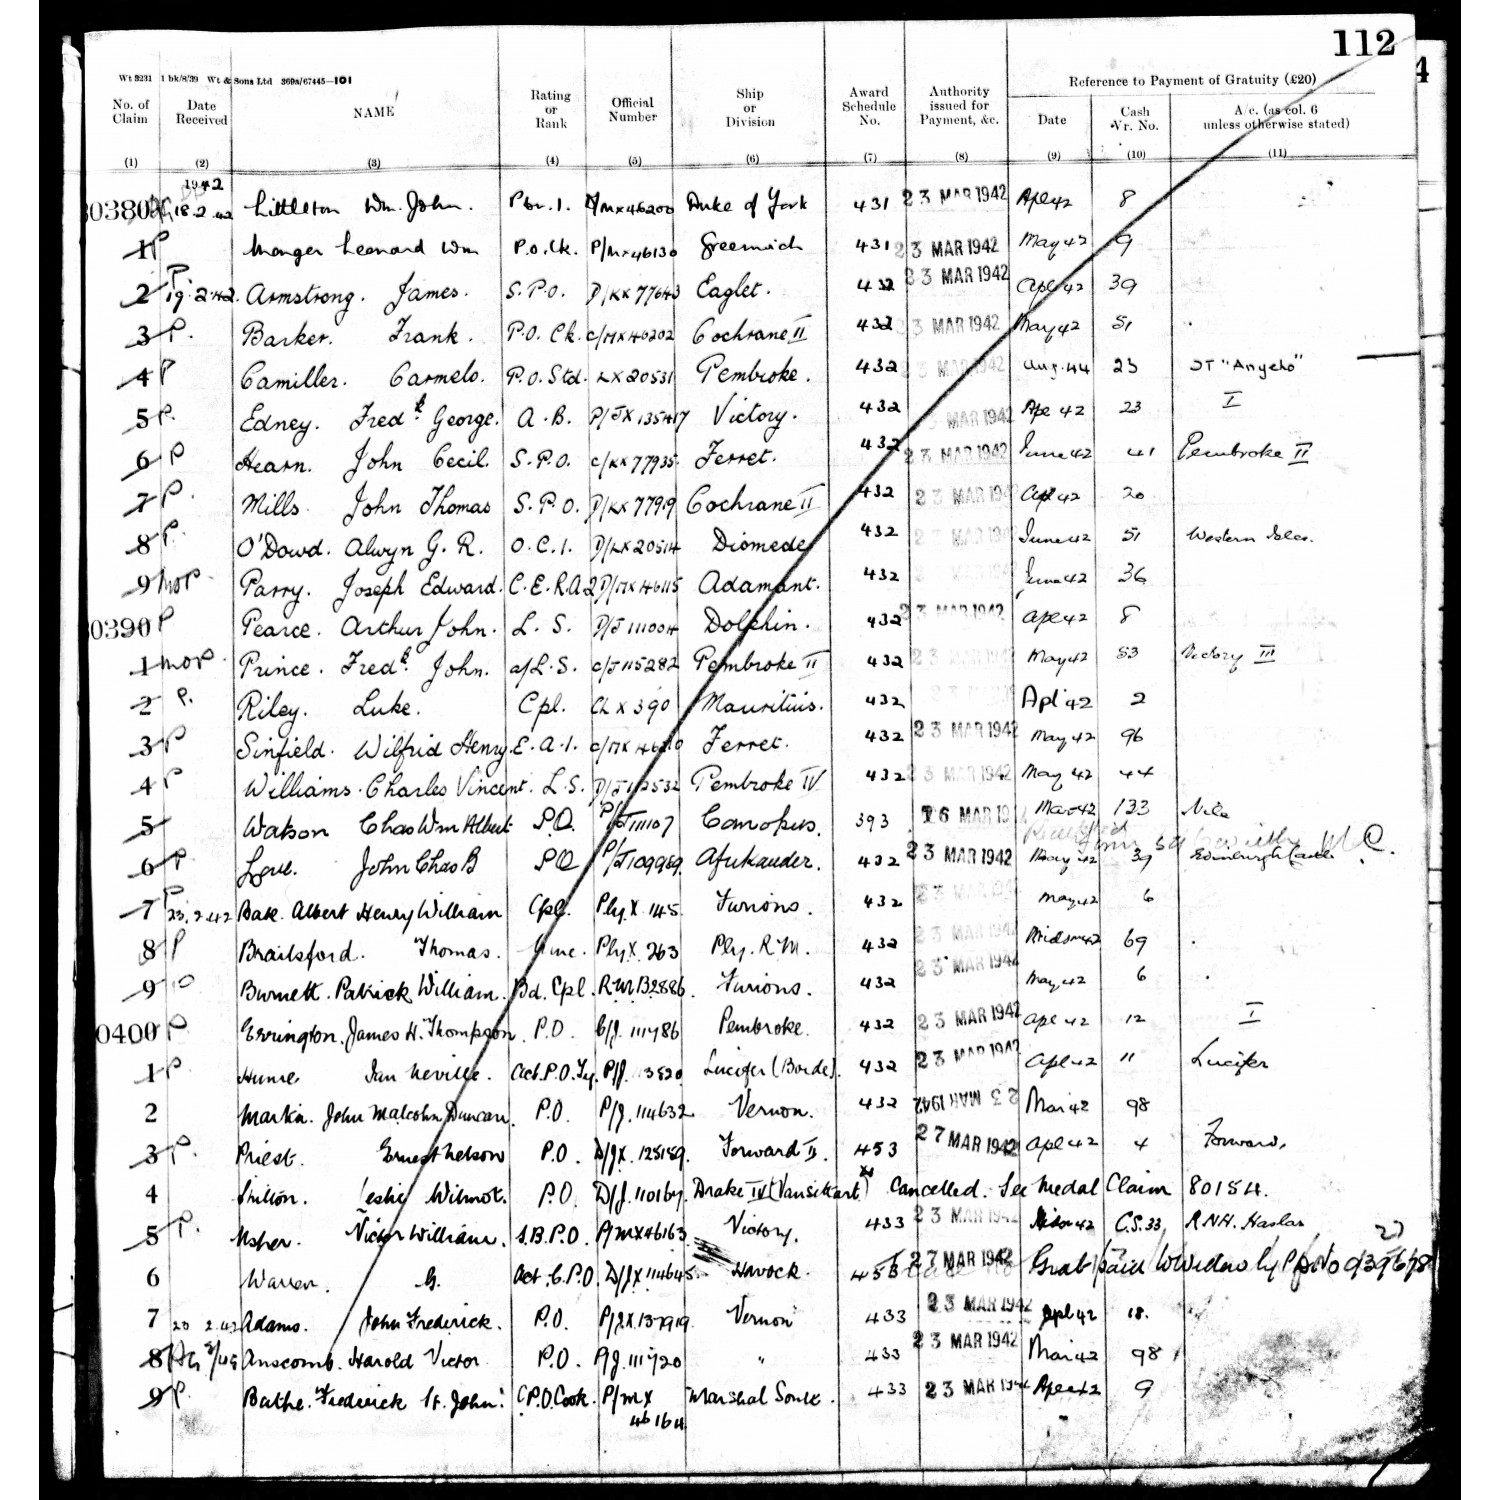 112
Wt 3231 1 bk/8/39 Wt & Sons Ltd 369a/67445—101
Reference to Payment of Gratuity (£20)
No. of Claim Date Received NAME Rating or Rank Official Number Ship or Division Award Schedule No. Authority issued for Payment, &c. Date Cash Vr. No. A/c. (as col. 6 unless otherwise stated)
(1) (2) (3) (4) (5) (6) (7) (8) (9) (10) (11)
1942
0380 18.2.42 Littleton Wm. John. 1. Duke of York 431 23 MAR 1942 Apl 42 8
1 P Monger Leonard Wm P.O. Ck. P/MX46130 Greenwich 431 23 MAR 1942 May 42 9
2 P 19.2.42. Armstrong. James. S.P.O. D/KX 77643 Eaglet. 432 23 MAR 1942 Apl 42 39
3 P. Barker. Frank. P.O. Ck. C/MX46202 Cochrane II 432 23 MAR 1942 May 42 51
4 P Camiller. Carmelo. P.O. Std. LX20531 Pembroke. 432 23 MAR 1942 Aug. 44 23 ST "Angelo"
5 P. Edney. Fredk. George. A.B. P/JX135417 Victory. 432 MAR 1942 Apl 42 23 I
6 P Hearn. John Cecil. S.P.O. C/KX77935 Ferret. 432 23 MAR 1942 June 42 41 Pembroke II
7 P. Mills. John Thomas S.P.O. D/KX77919 Cochrane II 432 23 MAR 194 Apl 42 20
8 P. O'Dowd. Alwyn G. R. O.C.1. D/LX20514 Diomede 432 23 MAR 194 June 42 51 Western Isles.
9 MOP. Parry. Joseph Edward. C.E.R.A.2 D/MX46115 Adamant. 432 June 42 36
0390 P Pearce. Arthur John. L.S. D/J111004 Dolphin. 432 23 MAR 1942 Apl 42 8
1 MOP. Prince. Fredk. John. a/L.S. C/J115282 Pembroke II 432 23 MAR 194 May 42 53 Victory III
2 P. Riley. Luke. Cpl. CH X 390 Mauritius. 432 Apl 42 2
3 P Sinfield. Wilfrid Henry. E.A.1. C/MX Ferret. 432 23 MAR 1942 May 42 96
4 P Williams. Charles Vincent. L.S. Pembroke IV 432 23 MAR 1942 May 42 44
5 Watson Chas Wm Albert P.O. P/J11107 Canopus. 393 16 MAR 19 Mar 42 133 Nile
6 P Love. John Chas B P.O. P/J109989 Afrikander. 432 23 MAR 1942 May 42 39 Edinburgh Castle
7 P 23.2.42 Bate. Albert Henry William Cpl. Ply.X.145. Furious. 432 23 MAR 1942 May 42 6
8 P Brailsford. Thomas. Mne. Ply.X.263 Ply. R.M. 432 23 MAR 1942 Midsr 42 69
9 Burnett. Patrick William. Bd. Cpl. R.M.B2886. Furious. 432 23 MAR 1942 May 42 6
0400 P Errington. James H. Thompson. P.O. C/J.111486 Pembroke. 432 23 MAR 1942 Apl 42 12 I
1 P Hume. Ian Neville. Act. P.O. Ty. P/J.13520 Lucifer (Borde). 432 23 MAR 1942 Apl 42 11 Lucifer
2 Martin. John Malcolm Duncan. P.O. P/J.114632 Vernon. 432 23 MAR 1942 Mar 42 98
3 P. Priest. Ernest Nelson P.O. D/JX.125189. Forward II. 453 27 MAR 1942 Apl 42 4 Forward.
4 Shilton. Leslie Wilmot. P.O. D/J.110167. Drake IV (Vansittart) Cancelled. See Medal Claim 80154.
5 P. Usher. Victor William. S.B.P.O. P/MX46163 Victory. 433 23 MAR 1942 42 C.S.33, R.N.H. Haslar
6 Warren. G. Act. C.P.O. D/JX114645. Havock. 453 27 MAR 1942 Grat paid to Widow by P.O.
7 20 2.42 Adams. John Frederick. P.O. P/JX.137919. Vernon 433 23 MAR 1942 Apl 42 18.
8 Anscomb. Harold Victor P.O. P/J.111720 " 433 23 MAR 1942 Mar 42 98
9 P. Bathe. Frederick St. John. C.P.O. Cook. P/MX 46164 Marshal Soult. 433 23 MAR 1942 Apl 42 9